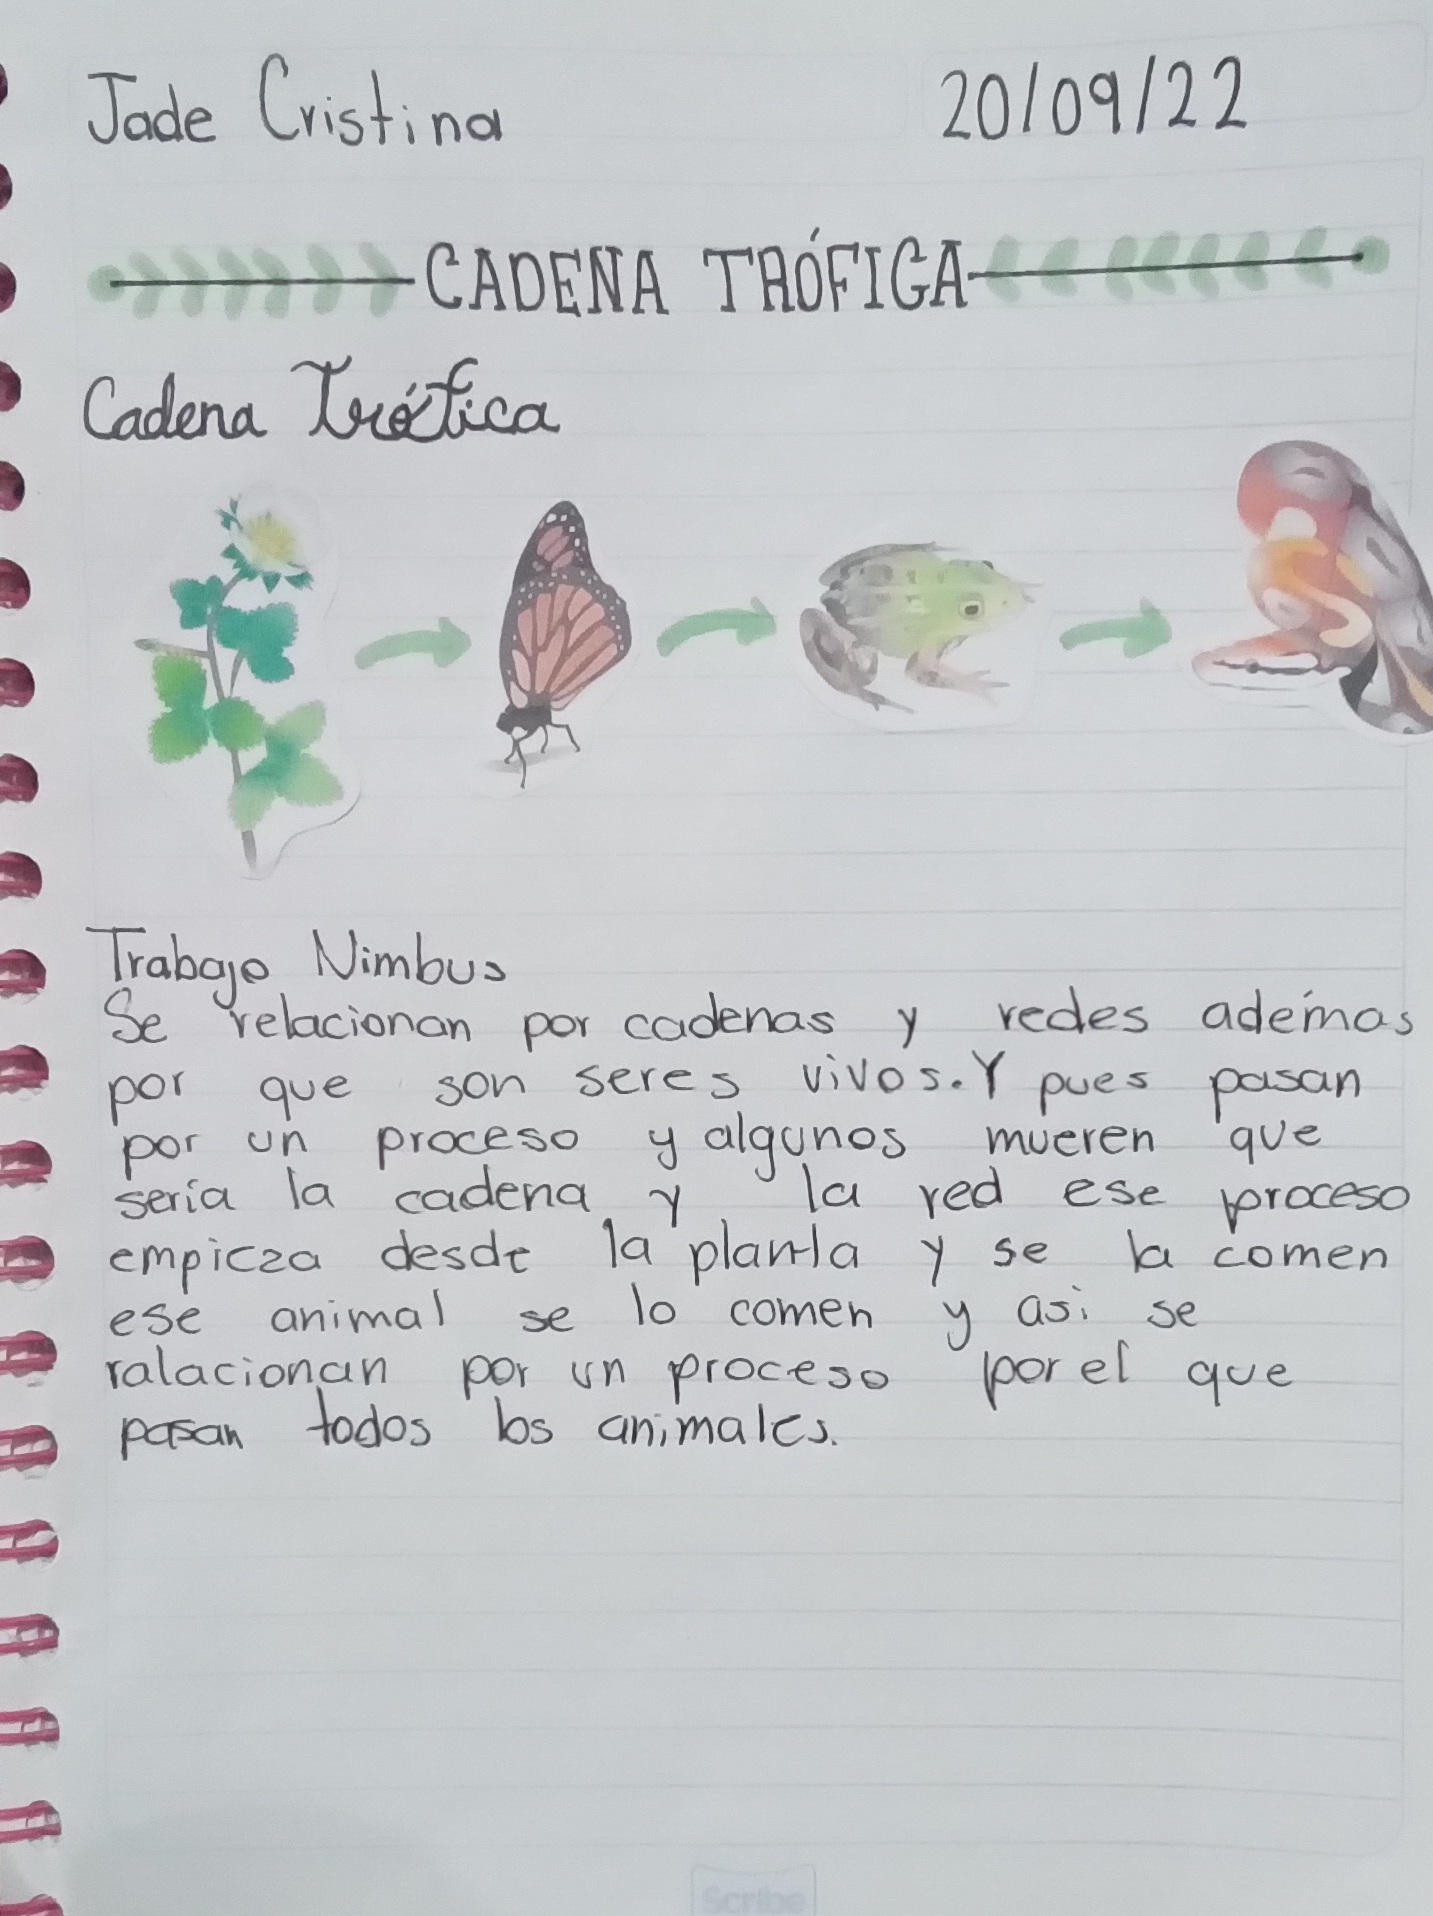 Jade Cristina 20/09/22
CADENA TRÓFIGA
Cadena Trófica
Trabajo Nimbus
Se relacionan por cadenas y redes ademas
por que son seres vivos. Y pues pasan
por un proceso y algunos mueren que
seria la cadena y la red ese proceso
empieza desde la planta y se la comen
ese animal se lo comen y asi se
ralacionan por un proceso por el que
pasan todos los animales.
Scribe